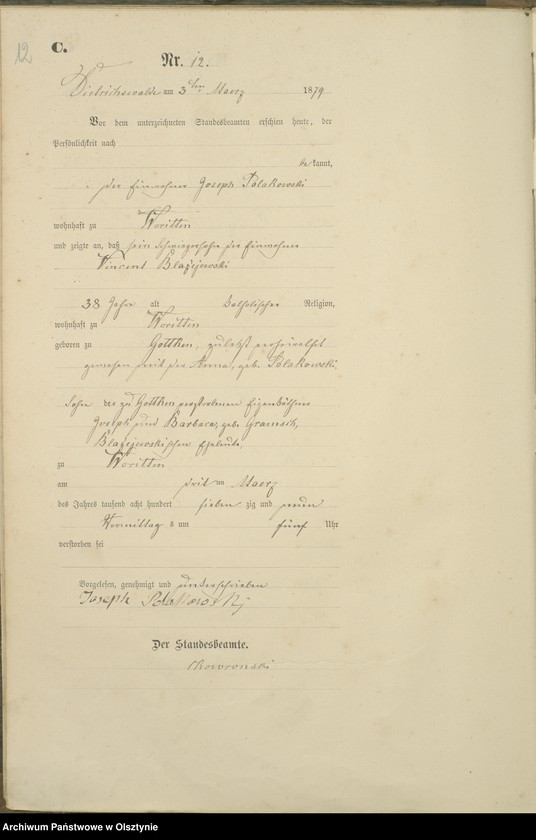 12
C.
Nr. 12.
Dietrichswalde am 3ten Maerz 1879
Vor dem unterzeichneten Standesbeamten erschien heute, der
Persönlichkeit nach
be kannt,
der Einwohner Joseph Polakowski
wohnhaft zu Woritten
und zeigte an, daß sein Schwiegersohn der Einwohner
Vincent Blazejewski
38 Jahre alt katholischer Religion,
wohnhaft zu Woritten
geboren zu Gottken, zuletzt verheirathet
gewesen mit der Anna, geb. Polakowski,
Sohn der zu Gottken verstorbenen Eigenkäthner
Joseph und Barbara, geb. Gramsch,
Blazejewskischen Eheleute,
zu Woritten
am dritten Maerz
des Jahres tausend acht hundert sieben zig und neun
Vormittag s um fünf Uhr
verstorben sei
Vorgelesen, genehmigt und unterschrieben
Joseph Polakowskj
Der Standesbeamte.
Skowronski
Archiwum Państwowe w Olsztynie